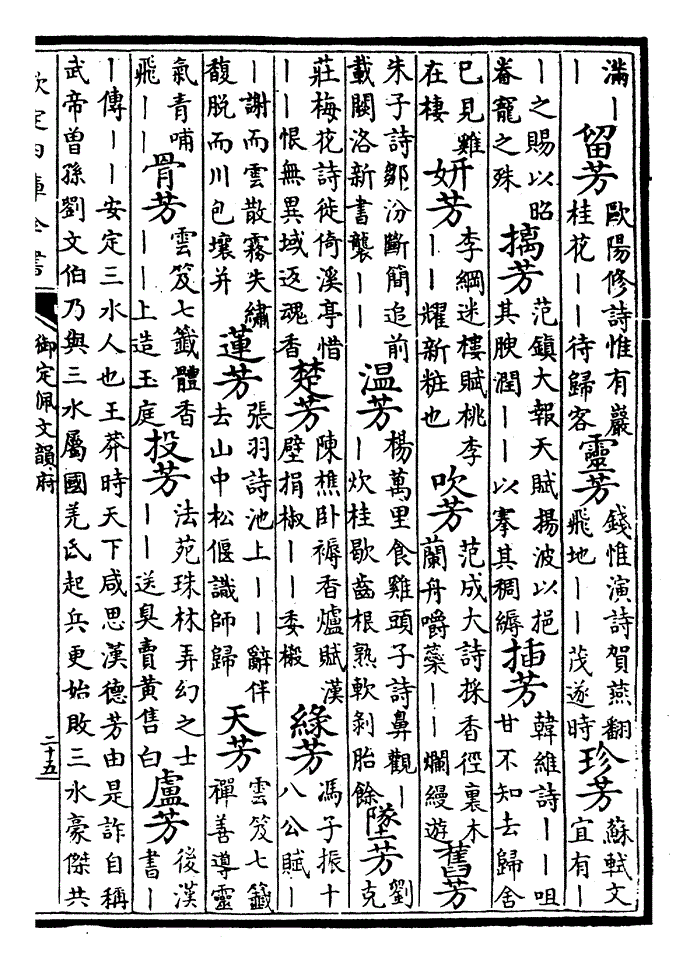 滿｜｜留芳歐陽修詩惟有巖桂花｜｜待歸客靈芳錢惟演詩賀燕翻飛地｜｜茂遂時珍芳蘇軾文宜有｜
｜之賜以昭眷寵之殊摛芳范鎮大報天賦揚波以挹其腴潤｜｜以搴其稠縟插芳韓維詩｜｜咀甘不知去歸舍
巳見雞在棲妍芳李綱迷樓賦桃李｜｜耀新粧也吹芳范成大詩採香徑裏木蘭舟嚼蘂｜｜爛縵遊舊芳
朱子詩鄒汾斷簡追前載關洛新書襲｜｜温芳楊萬里食雞頭子詩鼻觀｜｜炊桂歇齒根熟軟剝胎餘墜芳劉克
莊梅花詩徙倚溪亭惜｜｜恨無異域返魂香楚芳陳樵卧褥香爐賦漢壁捐椒｜｜委椴綠芳馮子振十八公賦｜
｜謝而雲散霧失繡馥脫而川包壤并蓮芳張羽詩池上｜｜辭伴去山中松偃識師歸天芳雲笈七籤禪善導靈
氣青哺飛｜｜骨芳雲笈七籤體香｜｜上造玉庭投芳法苑珠林弄幻之士｜｜送臭賣黃售白盧芳後漢書｜
｜傳｜｜安定三水人也王莽時天下咸思漢德芳由是詐自稱武帝曾孫劉文伯乃與三水屬國羌氐起兵更始敗三水豪傑共
欽定四庫全書
御定佩文韻府
二十五